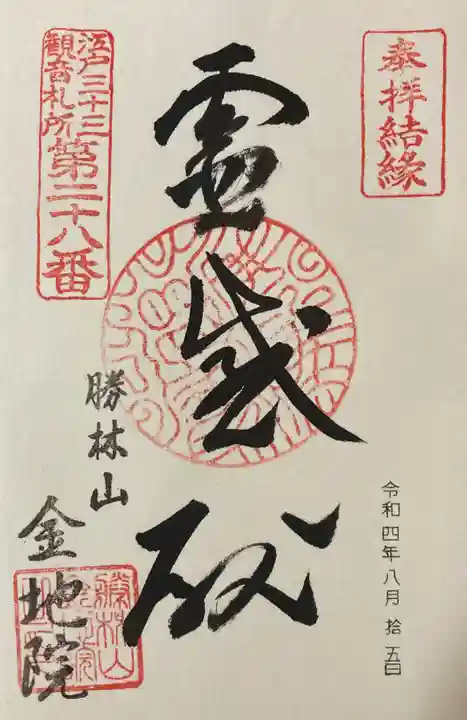 奉拝結縁
令和四年八月 拾五日
霊感殿
江戸三十三
觀音札所
第二十八番
勝林山
金地院
勝林山